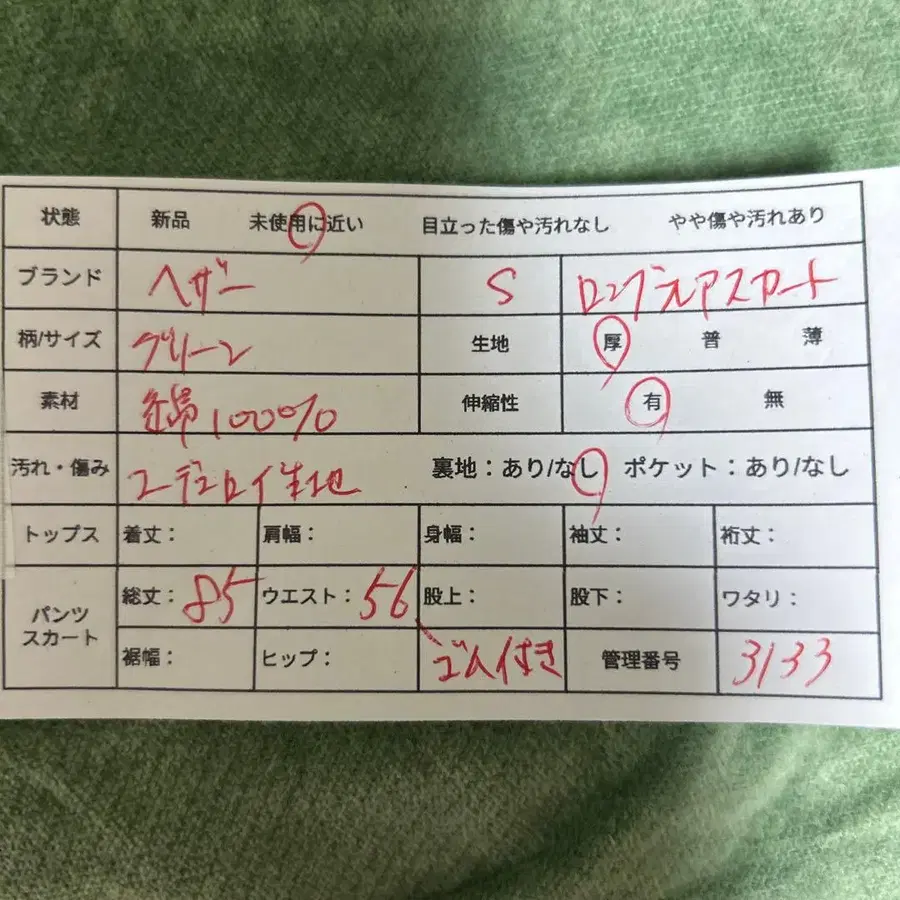 状態 新品 未使用に近い 目立った傷や汚れなし やや傷や汚れあり
ブランド ヘザー S ロングフレアスカート
柄/サイズ グリーン 生地 厚 普 薄
素材 綿100% 伸縮性 有 無
汚れ・傷み コーデュロイ生地 裏地:あり/なし ポケット:あり/なし
トップス 着丈: 肩幅: 身幅: 袖丈: 裄丈:
パンツ スカート 総丈:85 ウエスト:56 股上: 股下: ワタリ:
裾幅: ヒップ: ゴム付き 管理番号 3133